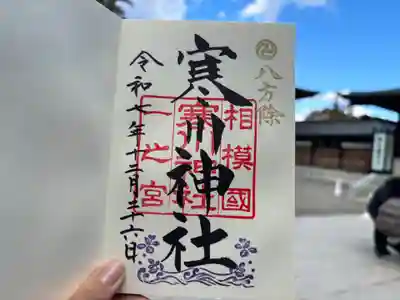 八方除
相模國
寒川神社
寒川神社
一之宮
令和七年十二月二十六日